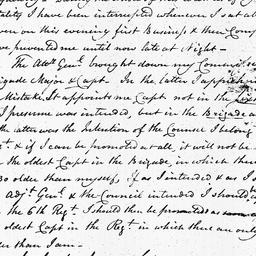 tality I have been interrupted whenever I sat
ver on this evening first Business & then Com
ve prevented me until now late at Night —
The Adjt. Genl. brought down my Commis
igade Major & Capt. In the latter I
Mistake, It appoints me Capt. not in the
I presume was intended, but in the Brigade a
the latter was the Intention of the Council I belong
gt. & if I can be promoted at all, it will not be
the oldest Capt in the Brigade, in which there
30 older than myself, if as I intended & as I
Adjt. Genl. & the Council intended I should
the 6th Regt. I should then be promoted as
oldest Capt in the Regt. in which there are only
der than I am —